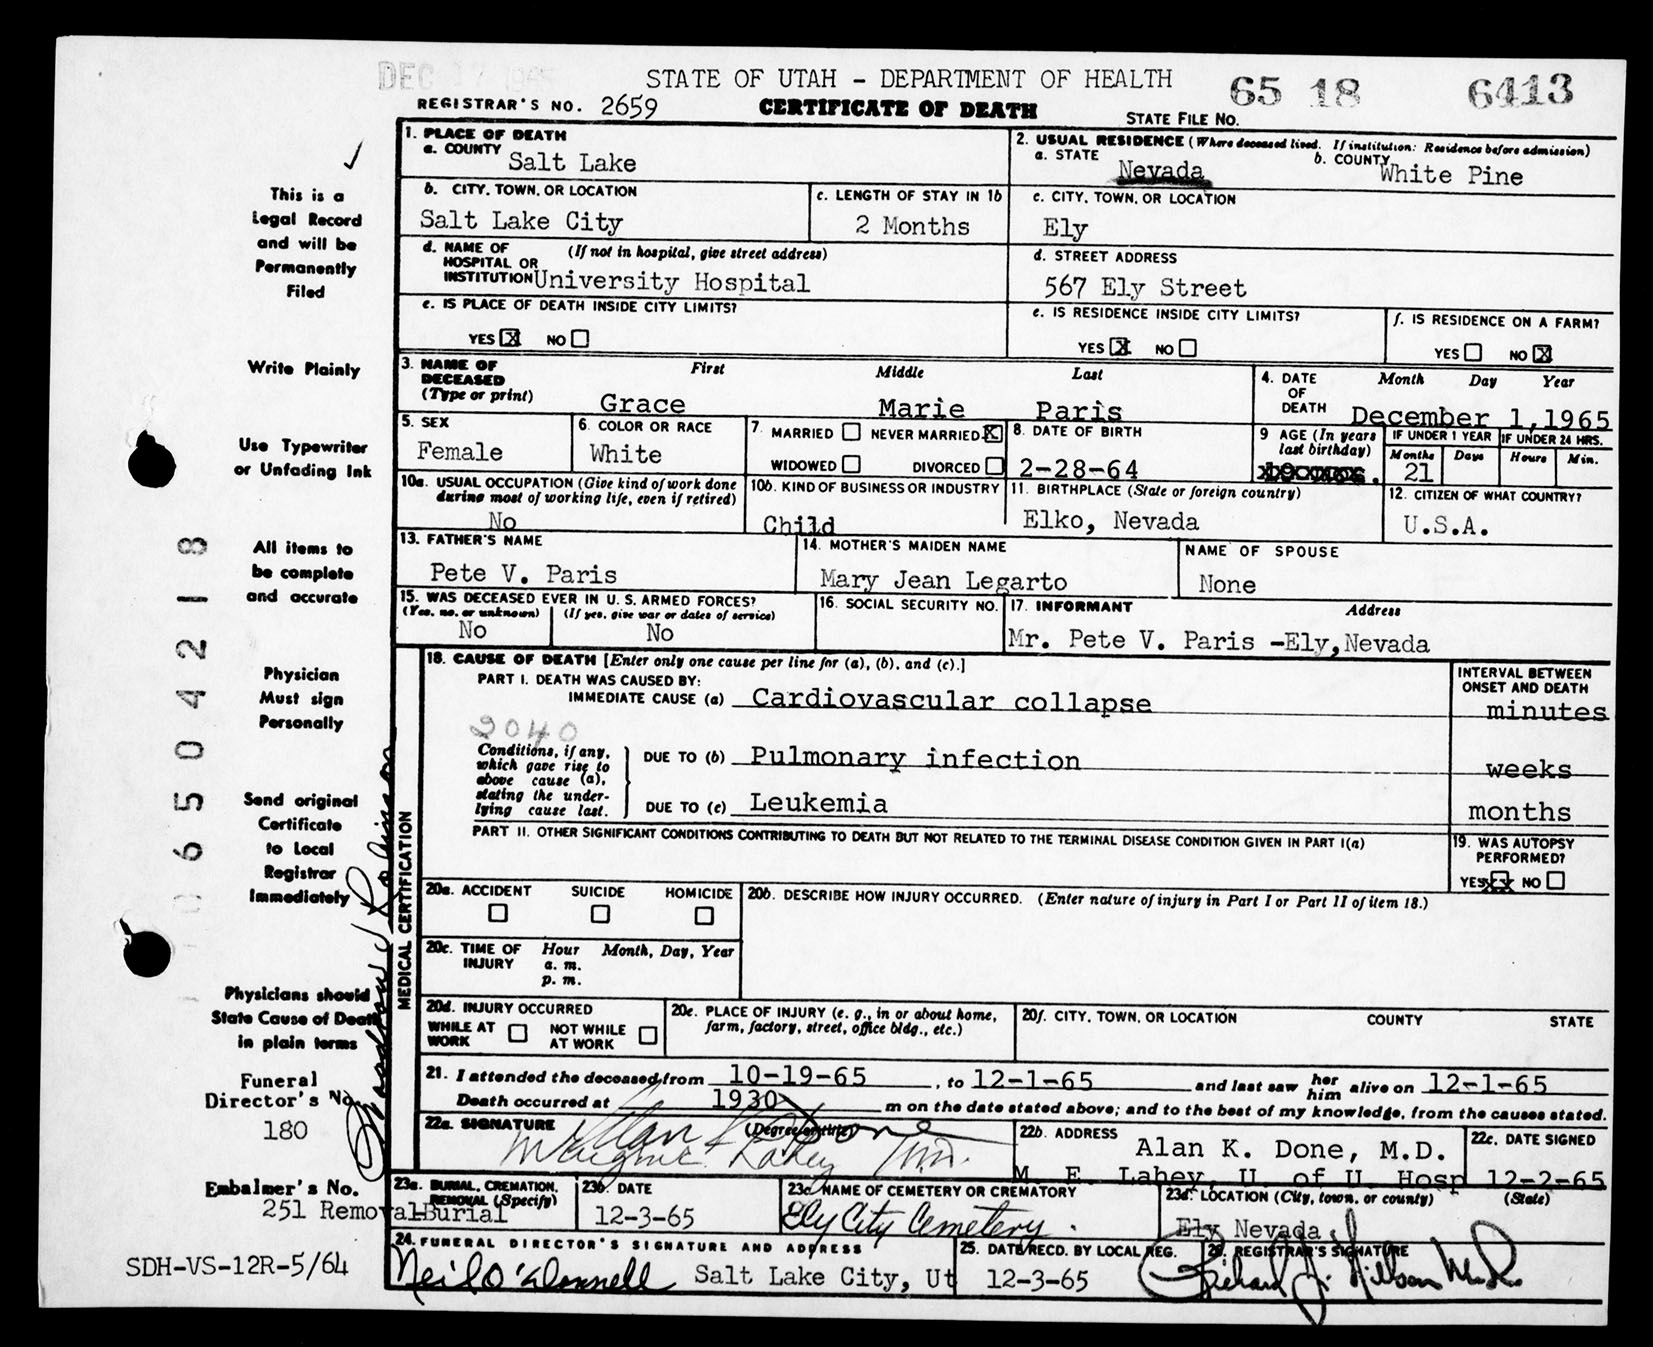 DEC 17 196
STATE OF UTAH - DEPARTMENT OF HEALTH
65 18 6413
REGISTRAR'S NO. 2659
CERTIFICATE OF DEATH
STATE FILE NO.
This is a
Legal Record
and will be
Permanently
Filed
Write Plainly
Use Typewriter
or Unfading Ink
All items to
be complete
and accurate
Physician
Must sign
Personally
Send original
Certificate
to Local
Registrar
Immediately
Physicians should
State Cause of Death
in plain terms
Funeral
Director's No.
180
Embalmer's No.
251
SDH-VS-12R-5/64
0650421 8
1. PLACE OF DEATH
a. COUNTY Salt Lake
2. USUAL RESIDENCE (Where deceased lived. If institution: Residence before admission)
a. STATE Nevada b. COUNTY White Pine
b. CITY, TOWN, OR LOCATION
Salt Lake City
c. LENGTH OF STAY IN 1b
2 Months
c. CITY, TOWN, OR LOCATION
Ely
d. NAME OF HOSPITAL OR INSTITUTION (If not in hospital, give street address)
University Hospital
d. STREET ADDRESS
567 Ely Street
e. IS PLACE OF DEATH INSIDE CITY LIMITS?
YES X NO
e. IS RESIDENCE INSIDE CITY LIMITS?
YES X NO
f. IS RESIDENCE ON A FARM?
YES NO X
3. NAME OF DECEASED (Type or print)
First Middle Last
Grace Marie Paris
4. DATE OF DEATH Month Day Year
December 1,1965
5. SEX
Female
6. COLOR OR RACE
White
7. MARRIED NEVER MARRIED X
WIDOWED DIVORCED
8. DATE OF BIRTH
2-28-64
9 AGE (In years last birthday)
IF UNDER 1 YEAR IF UNDER 24 HRS.
Months Days Hours Min.
21
10a. USUAL OCCUPATION (Give kind of work done during most of working life, even if retired)
No
10b. KIND OF BUSINESS OR INDUSTRY
Child
11. BIRTHPLACE (State or foreign country)
Elko, Nevada
12. CITIZEN OF WHAT COUNTRY?
U.S.A.
13. FATHER'S NAME
Pete V. Paris
14. MOTHER'S MAIDEN NAME
Mary Jean Legarto
NAME OF SPOUSE
None
15. WAS DECEASED EVER IN U.S. ARMED FORCES?
(Yes, no, or unknown) (If yes, give war or dates of service)
No No
16. SOCIAL SECURITY NO.
17. INFORMANT Address
Mr. Pete V. Paris -Ely, Nevada
MEDICAL CERTIFICATION
18. CAUSE OF DEATH [Enter only one cause per line for (a), (b), and (c).]
INTERVAL BETWEEN ONSET AND DEATH
PART I. DEATH WAS CAUSED BY:
IMMEDIATE CAUSE (a) Cardiovascular collapse minutes
2040
Conditions, if any, which gave rise to above cause (a), stating the underlying cause last.
DUE TO (b) Pulmonary infection weeks
DUE TO (c) Leukemia months
PART II. OTHER SIGNIFICANT CONDITIONS CONTRIBUTING TO DEATH BUT NOT RELATED TO THE TERMINAL DISEASE CONDITION GIVEN IN PART I(a)
19. WAS AUTOPSY PERFORMED?
YES XX NO
20a. ACCIDENT SUICIDE HOMICIDE
20b. DESCRIBE HOW INJURY OCCURRED. (Enter nature of injury in Part I or Part II of item 18.)
20c. TIME OF INJURY Hour Month, Day, Year
a. m.
p. m.
20d. INJURY OCCURRED
WHILE AT WORK NOT WHILE AT WORK
20e. PLACE OF INJURY (e. g., in or about home, farm, factory, street, office bldg., etc.)
20f. CITY, TOWN, OR LOCATION COUNTY STATE
21. I attended the deceased from 10-19-65, to 12-1-65 and last saw her him alive on 12-1-65
Death occurred at 1930 m on the date stated above; and to the best of my knowledge, from the causes stated.
22a. SIGNATURE (Degree or title)
Alan K Done
M Eugene Lahey M.D.
22b. ADDRESS
Alan K. Done, M.D.
M. E. Lahey, U. of U. Hosp
22c. DATE SIGNED
12-2-65
23a. BURIAL, CREMATION, REMOVAL (Specify)
Removal-Burial
23b. DATE
12-3-65
23c. NAME OF CEMETERY OR CREMATORY
Ely City Cemetery.
23d. LOCATION (City, town, or county) (State)
Ely Nevada
24. FUNERAL DIRECTOR'S SIGNATURE AND ADDRESS
Neil O'Donnell Salt Lake City, Ut
25. DATE RECD. BY LOCAL REG.
12-3-65
26. REGISTRAR'S SIGNATURE
Richard J.